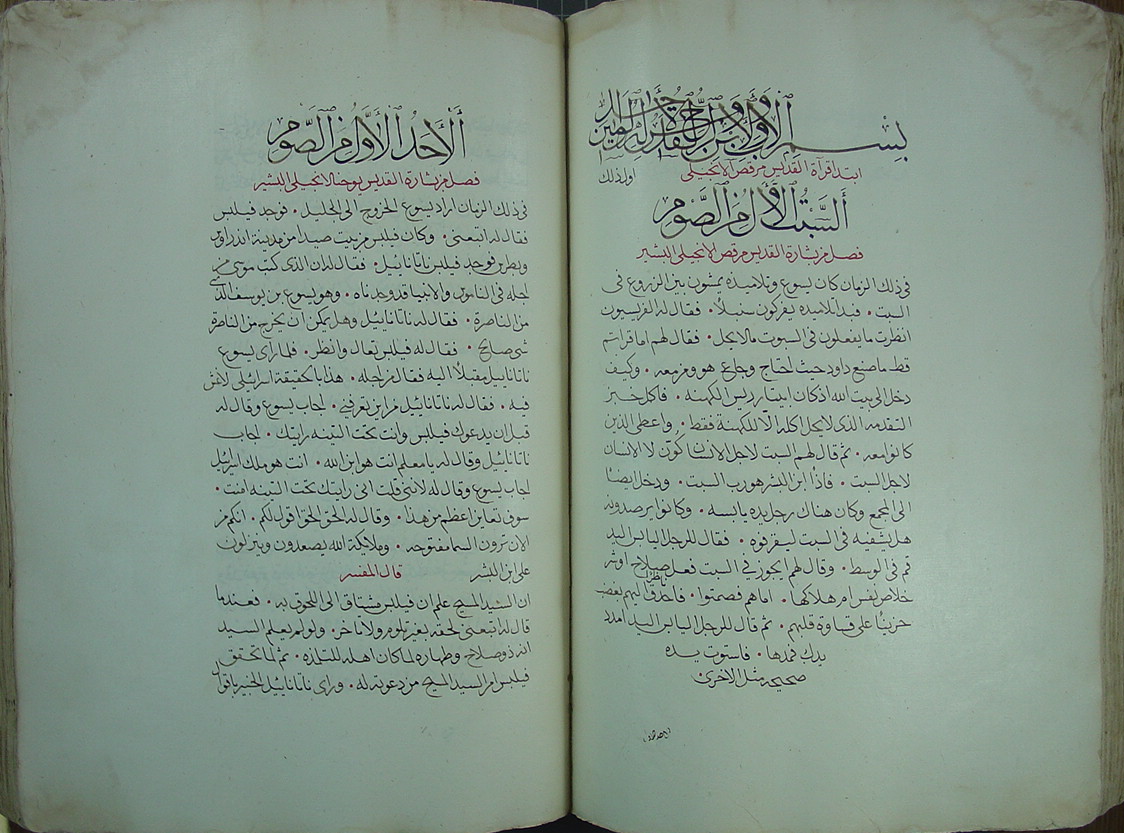 بسم الاب والابن والروح القدس اله واحد امين
ابتدا قرآة القديس مرقص الانجيلي
اولذلك
السبت الاول من الصوم
فصل من بشارة القديس مرقص الانجيلي البشير
في ذلك الزمان كان يسوع وتلاميذه يمشون بين الزروع في
السبت ٠ فبدا تلاميذه يفركون سنبلاً ٠ فقال له الفريسيون
انظر ما يفعلون في السبوت ما لا يحل ٠ فقال لهم اما قراتم
قط ما صنع داود حيث احتاج وجاع هو ومن معه ٠ وكيف
دخل الى بيت الله اذ كان ابيتار ريس الكهنه ٠ فاكل خبز
التقدمه الذي لا يحل اكله الّا للكهنة فقط ٠ واعطى الذين
كانوا معه ٠ ثم قال لهم السبت لاجل الانسان كوّن لا الانسان
لاجل السبت ٠ فاذًا ابن البشر هو رب السبت ٠ ودخل ايضًا
الى المجمع وكان هناك رجل يده يابسه ٠ وكانوا يرصدونه
هل يشفيه في السبت ليقرفوه ٠ فقال للرجل اليابس اليد
قم في الوسط ٠ وقال لهم ايجوز في السبت فعل صلاح او شر
خلاص نفس ام هلاكها ٠ اما هم فصمتوا ٠ فاحدق اليهم بغضب
ناظرًا
حزينًا على قساوة قلبهم ٠ ثم قال للرجل اليابس اليد امدد
يدك فمدها ٠ فاستوت يده
صحيحه مثل الاخرى
الاحد الاول من الصوم
فصل من بشارة القديس يوحنا الانجيلي البشير
في ذلك الزمان اراد يسوع الخروج الى الجليل ٠ فوجد فيلبس
فقال له اتبعني ٠ وكان فيلبس من بيت صيدا من مدينة اندراوس
وبطرس فوجد فيلبس ناثانائيل ٠ فقال له ان الذي كتب موسى من
اجله في الناموس والانبيا قد وجدناه ٠ وهو يسوع بن يوسف الذي
من الناصرة ٠ فقال له ناثانائيل وهل يمكن ان يخرج من الناصرة
شي صالح ٠ فقال له فيلبس تعال وانظر ٠ فلما راى يسوع
ناثانائيل مقبلاً اليه فقال من اجله ٠ هذا بالحقيقة اسرائيلي لا غش
فيه ٠ فقال له ناثانائيل من اين تعرفني ٠ اجاب يسوع وقال له
قبل ان يدعوك فيلبس وانت تحت التينه رايتك ٠ اجاب
ناثانائيل وقال له يا معلم انت هو ابن الله ٠ انت هو ملك اسرائيل
اجاب يسوع وقال له لانني قلت اني رايتك تحت التينه امنت ٠
سوف تعاين اعظم من هذا ٠ وقال له الحق الحق اقول لكم ٠ انكم من
الان ترون السما مفتوحه ٠ وملايكة الله يصعدون وينزلون
على ابن البشر قال المفسر
ان السيد المسيح علم ان فيلبس مشتاق الى اللحوق به ٠ فعندما
قال له اتبعني لحقه بغير تلوم ولا تاخر ٠ ولو لم يعلم السيد
انه ذو صلاح وطهاره لما كان اهله للتلمذه ٠ ثم لما تحقق
فيلبس امر السيد المسيح من دعوته له ٠ وراى ناثانائيل الخبير باقوال